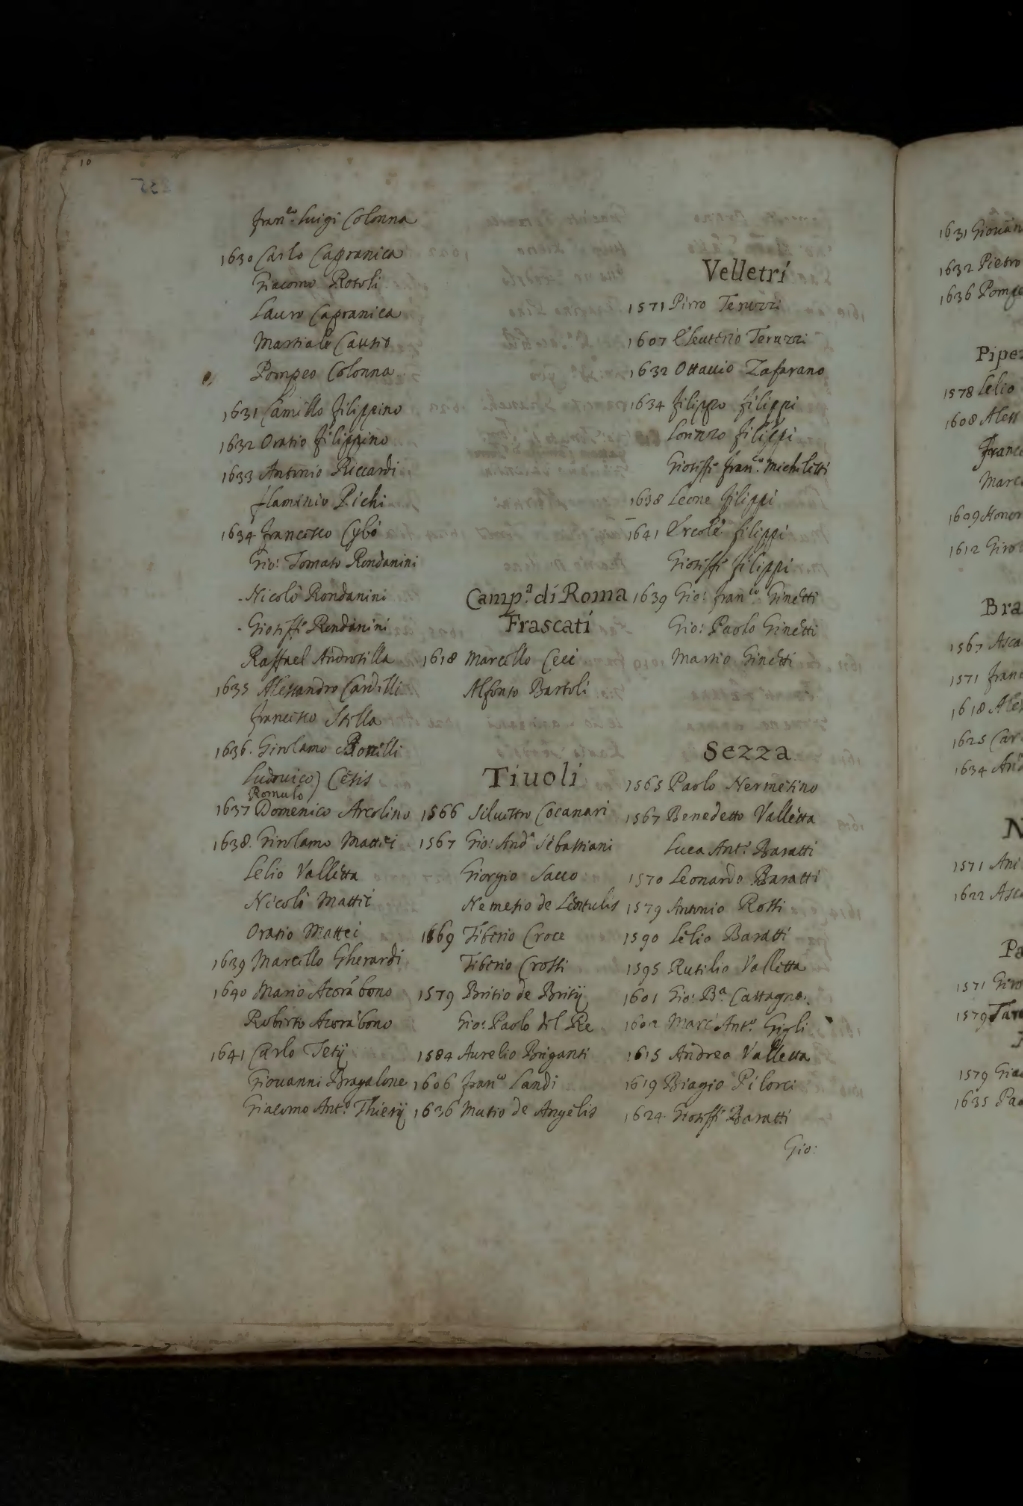 10
Fran.co Luigi Colonna
1630 Carlo Capranica
Giacomo Rotoli
Lauro Capranica
Martiale
Pompeo Colonna
1631 Camillo Filippino
1632 Oratio Filippino
1633 Antonio Riccardi
Flaminio Pichi
1634 Francesco Cybò
Gio: Tomaso Rondanini
- Nicolò Rondanini
- Gioseffe Rondanini
Raffael Androsilla
1635 Alessandro Cardilli
Francesco Stella
1636. Girolamo Bonilli
Ludouico) Cesis
Romulo
1637 Domenico Arcolino
1638. Girolamo Mattei
Lelio Valletta
Nicolò Mattei
Oratio Mattei
1639 Marcello Gherardi
1640 Mario Acorábono
Roberto Acorábono
1641 Carlo Tetij
Giouanni Bragalone
Giacomo Ant.o Thierij
Camp.a di Roma
Frascati
1618 Marcello Ceci
Alfonso Bartoli
Tiuoli
1566 Siluestro Cocanari
1567 Gio: And.a Sebastiani
Giorgio Sacco
Nemesio de Lentulis
1569 Tiberio Croce
Tiberio Crossi
1579 Britio de Britij
Gio: Paolo del Re
1584 Aurelio Briganti
1606 Fran.co Landi
1636 Mutio de Angelis
Velletri
1571 Pirro Teruzzi
1607 Eleuterio Teruzzi
1632 Ottauio Zafarano
1634 Filippo Filippi
Lorenzo Filippi
Gioseffe Fran.co Micheletti
1638 Leone Filippi
1641 Ercole Filippi
Gioseffe Filippi
1639 Gio: Fran.co Ginetti
Gio: Paolo Ginetti
Martio Ginetti
Sezza
1565 Paolo Nermesino
1567 Benedetto Valletta
Luca Ant.o Baratti
1570 Leonardo Baratti
1579 Antonio Rossi
1590 Lelio Baratti
1595 Rutilio Valletta
1601 Gio: B.a Castagna
1602 Marc'Ant.o Gigli
1615 Andrea Valletta
1619 Biagio Pilorci
1624. Gioseffe Baratti
Gio:
1631
1632 Pietro
1636
1578 Lelio
1608
1609
1612
1567
1571
1618
1625
1634
1571
1622
1571
1579
1579
1635